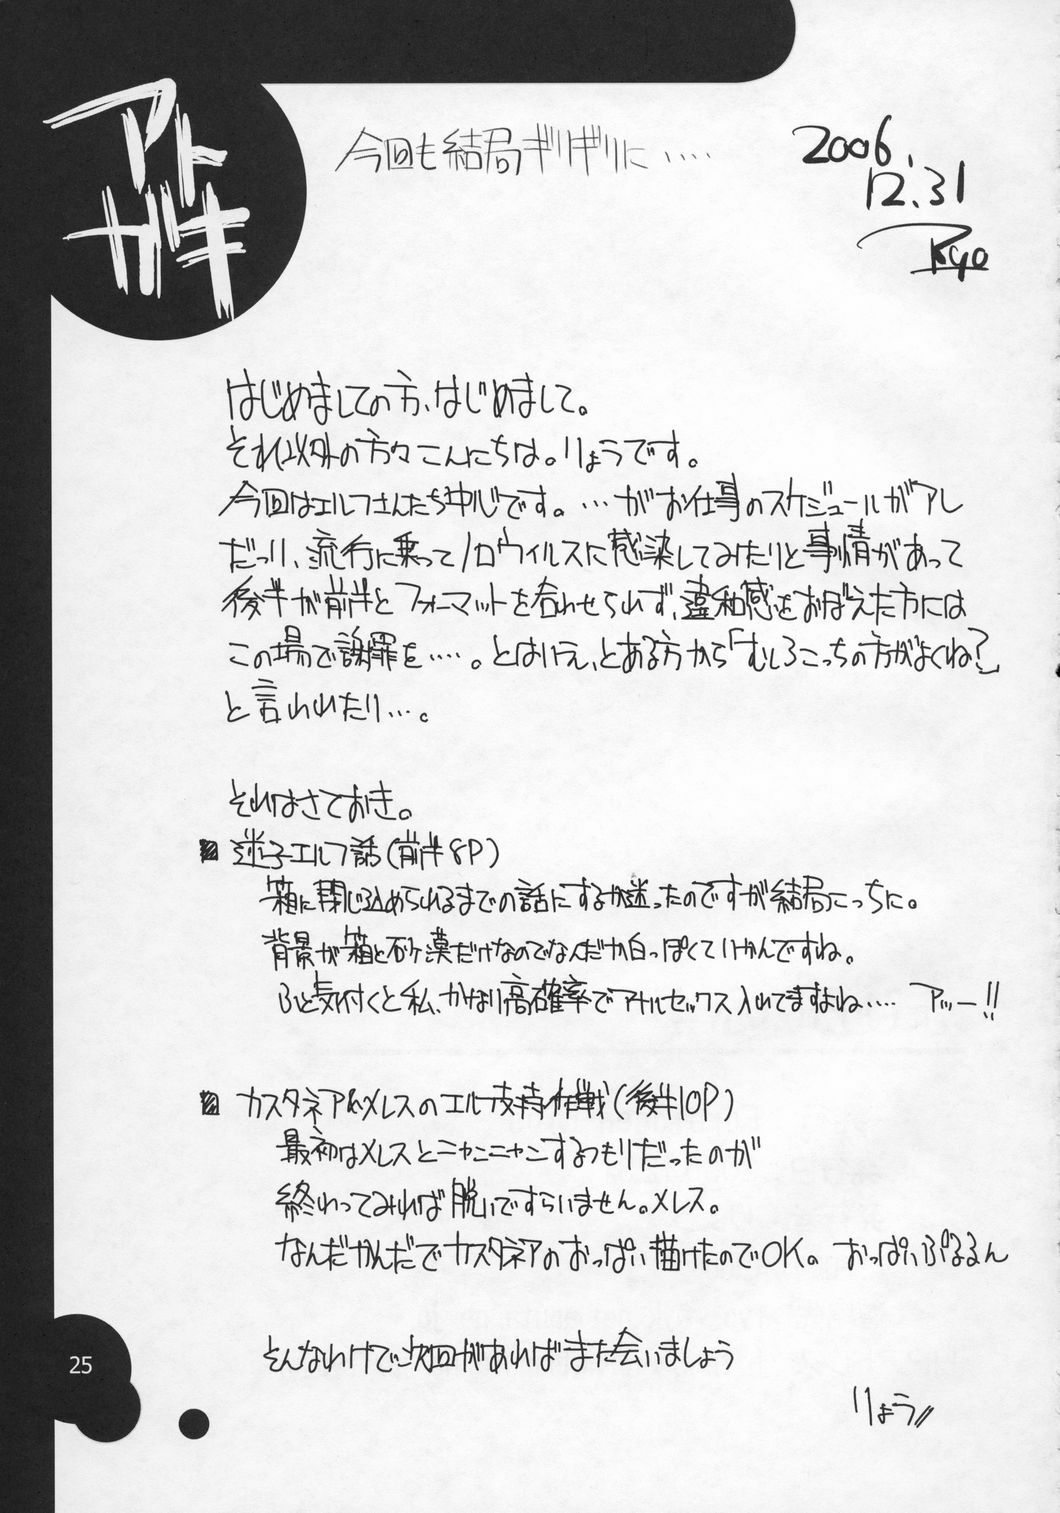 アトガキ
今回も結局ギリギリに‥‥
2006.
12.31
Ryo
はじめましての方、はじめまして。
それ以外の方々こんにちは。りょうです。
今回はエルフさんたち中心です。…がお仕事のスケジュールがアレ
だったり、流行に乗ってノロウィルスに感染してみたりと事情があって
後半が前半とフォーマットを合わせられず、違和感をおぼえた方には
この場で謝罪を‥‥。とはいえ、とある方から「むしろこっちの方がよくね?」
と言われたり…。
それはさておき。
迷子エルフ話(前半8P)
箱に閉じ込められるまでの話にするか迷ったのですが結局こっちに。
背景が箱と砂漠だけなのでなんだか白っぽくていかんですね。
ふと気付くと私、かなり高確率でアナルセックス入れてますよね‥‥ アッー!!
カスタネアVSメレスのエルフ支持作戦(後半10P)
最初はメレスとニャンニャンするつもりだったのが
終わってみれば脱いですらいません。メレス。
なんだかんだでカスタネアのおっぱい描けたのでOK。 おっぱいぷるるん
そんなわけで次回があればまた会いましょう
りょう
25